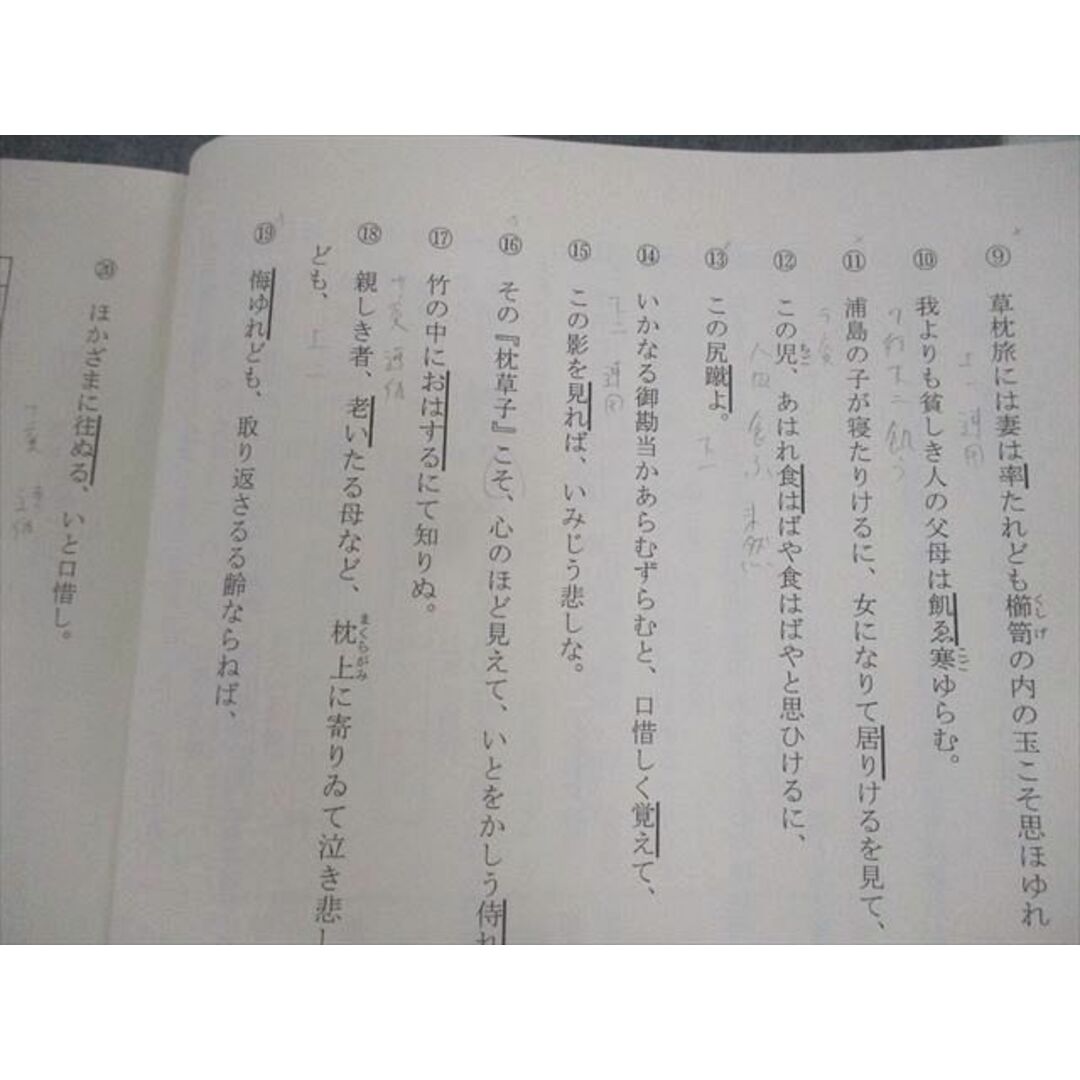 ⑨ 草枕旅には妻は率たれども櫛笥の内の玉こそ思ほゆれ
くしげ
上一 連用
⑩ 我よりも貧しき人の父母は飢ゑ寒ゆらむ。
こご
⑪ 浦島の子が寝たりけるに、女になりて居りけるを見て、
ラ変
⑫ この児、あはれ食はばや食はばやと思ひけるに、
ちご
ハ四 食ふ 未然
⑬ この尻蹴よ。
下一
⑭ いかなる御勘当かあらむずらむと、口惜しく覚えて、
下二 連用
⑮ この影を見れば、いみじう悲しな。
⑯ その『枕草子』こそ、心のほど見えて、いとをかしう侍れ
⑰ 竹の中におはするにて知りぬ。
サ変 連体
⑱ 親しき者、老いたる母など、枕上に寄りゐて泣き悲し
まくらがみ
ども、
上二
⑲ 悔ゆれども、取り返さるる齢ならねば、
⑳ ほかざまに往ぬる、いと口惜し。